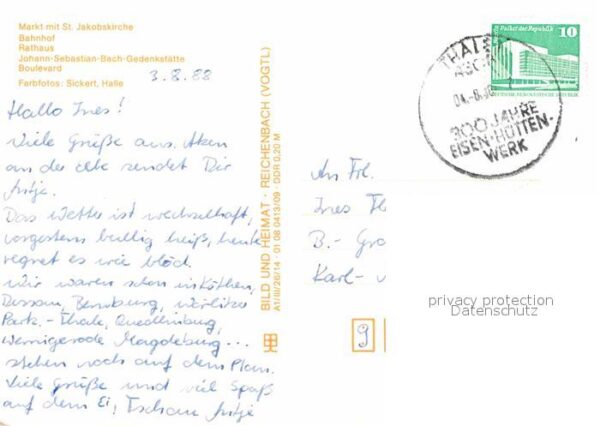 Markt mit St. Jakobskirche
Bahnhof
Rathaus
Johann-Sebastian-Bach-Gedenkstätte
Boulevard
Farbfotos: Sickert, Halle
3.8.88
Hallo Ines!
Viele Grüße aus Aken
an der Elbe sendet Dir
Antje.
Das Wetter ist wechselhaft,
vorgestern bullig heiß, heute
regnet es wie blöd.
Wir waren schon in Köthen,
Dessau, Bernburg, Wörlitzer
Park. - Thale, Quedlinburg,
Wernigerode Magdeburg...
stehen noch auf dem Plan.
Viele Grüße und viel Spaß
auf dem Ei, Tschau Antje
BILD UND HEIMAT · REICHENBACH (VOGTL)
A1/III/26/14 · 01 08 0413/09 · DDR 0,20 M
Palast der Republik 10
DEUTSCHE DEMOKRATISCHE REPUBLIK
THALE
04.-8.88
300 JAHRE
EISEN-HÜTTEN-
WERK
An Frl.
Ines
B.- Gro
Karl-
9
privacy protection
Datenschutz